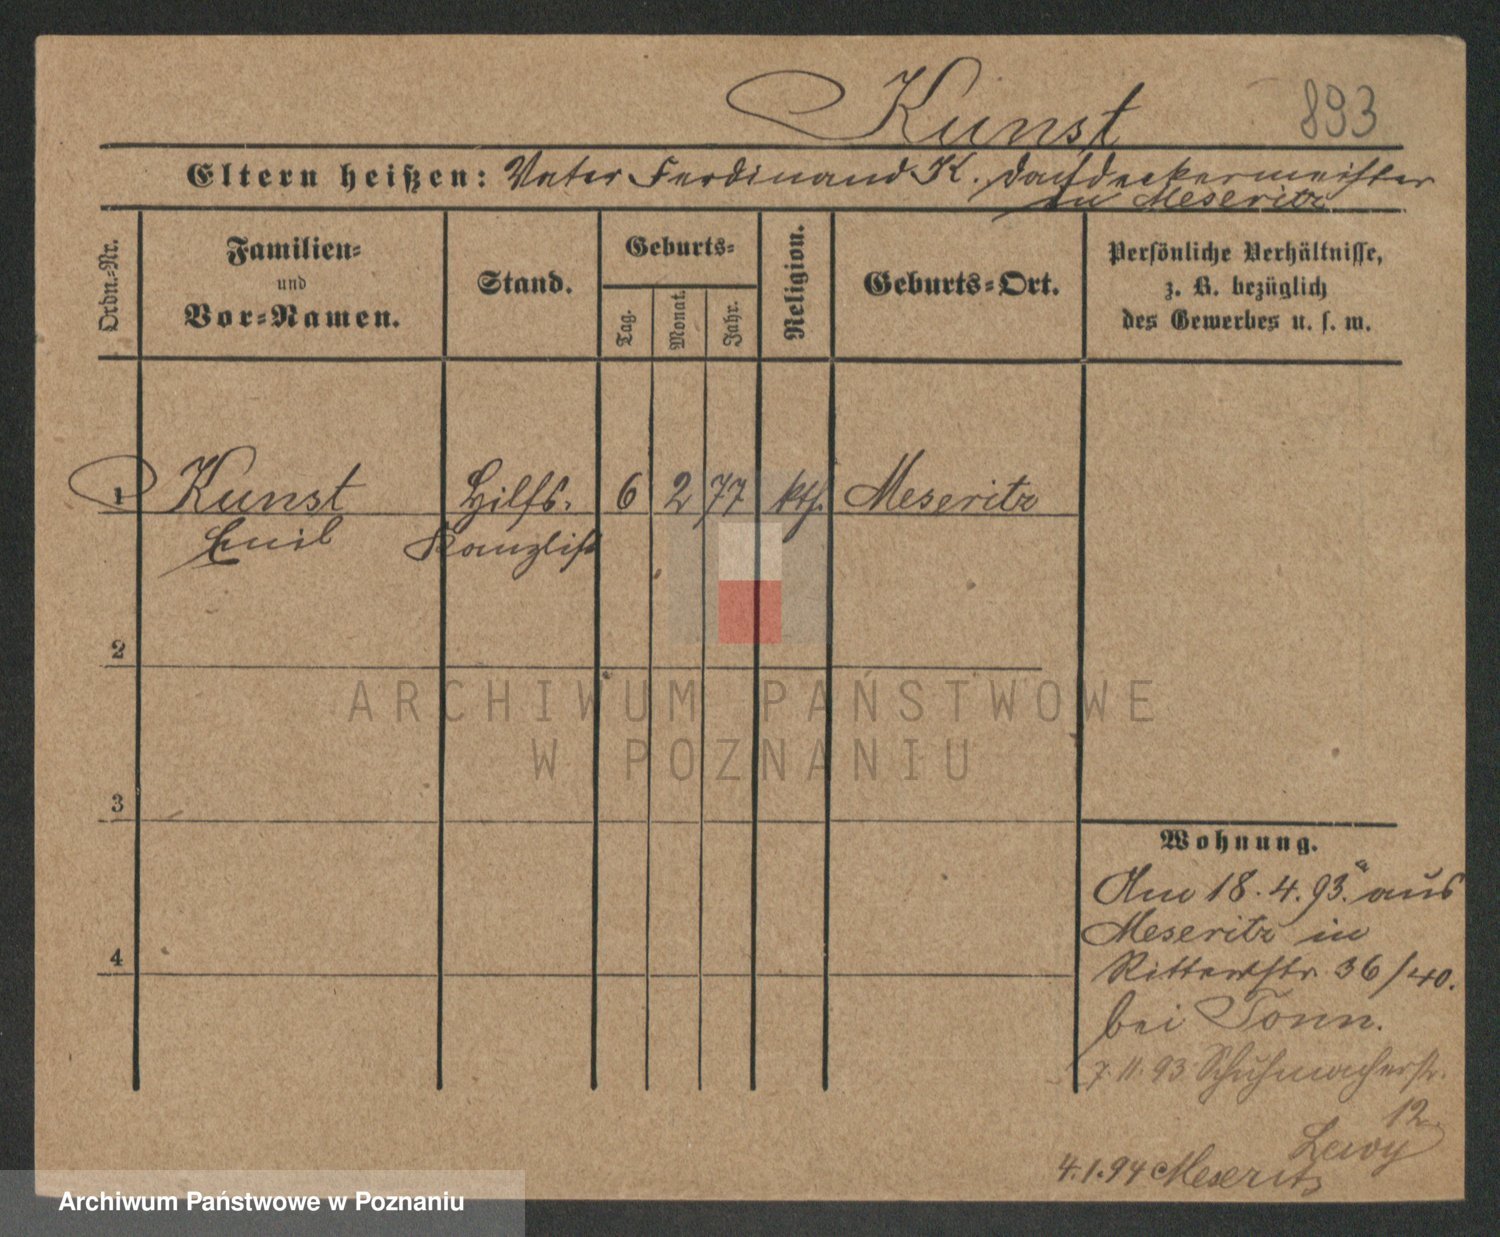 Kunst 893
Eltern heißen: Vater Ferdinand K. Dachdeckermeister
in Meseritz
Ordn.-Nr.
Familien-
und
Vor-Namen.
Stand.
Geburts-
Tag.
Monat.
Jahr.
Religion.
Geburts-Ort.
Persönliche Verhältnisse,
z. B. bezüglich
des Gewerbes u. s. w.
1 Kunst Hilfs- 6 2 77 kth. Meseritz
Emil Kanzlist
2
ARCHIWUM PAŃSTWOWE
W POZNANIU
3
Wohnung.
Am 18.4.93. aus
Meseritz in
Ritterstr. 36/40.
4
bei Tonn.
7.11.93 Schuhmacherstr.
12
Lewy
4.1.94 Meseritz
Archiwum Państwowe w Poznaniu